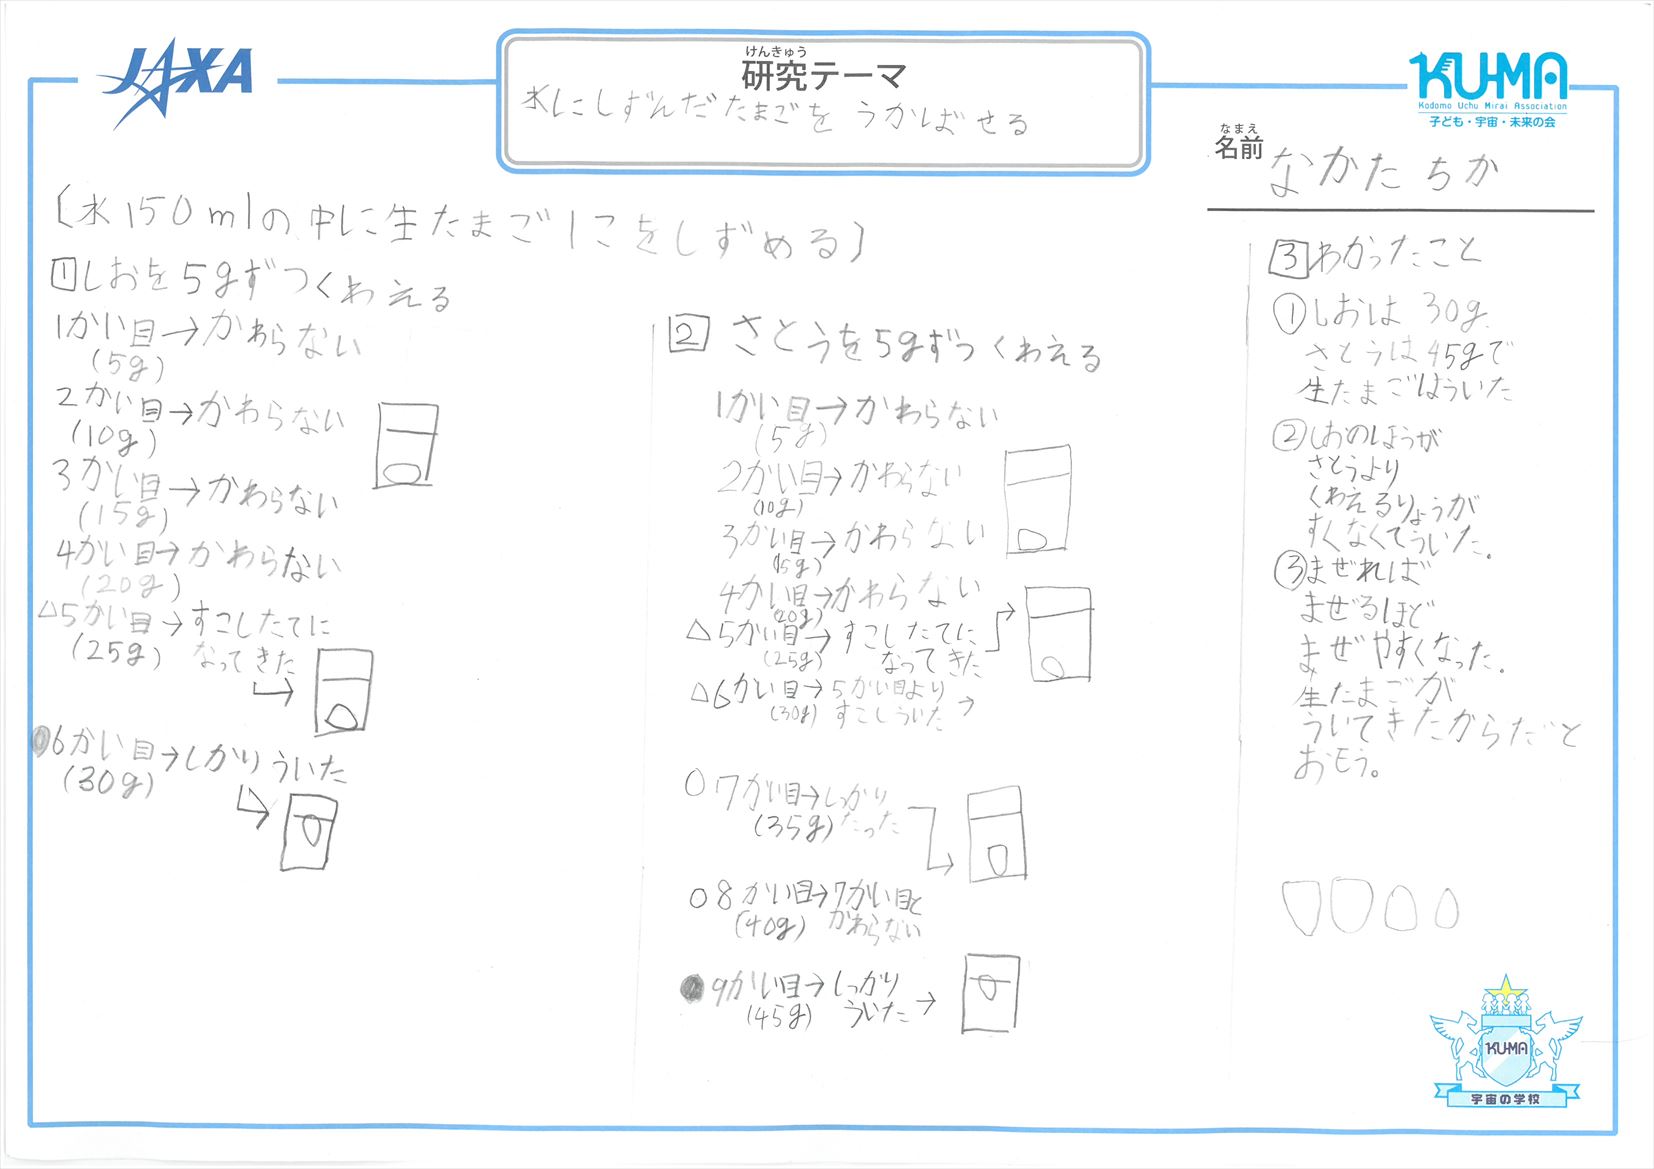 JAXA
けんきゅう
研究テーマ
水にしずんだたまごを うかばせる
KU-MA
Kodomo Uchu Mirai Association
子ども・宇宙・未来の会
なまえ
名前
なかた ちか
〔水150mlの中に生たまご1こをしずめる〕
1 しおを5gずつくわえる
1かい目→かわらない
(5g)
2かい目→かわらない
(10g)
3かい目→かわらない
(15g)
4かい目→かわらない
(20g)
△5かい目→すこしたてに
(25g) なってきた
6かい目→しかりういた
(30g)
2 さとうを5gずつくわえる
1かい目→かわらない
(5g)
2かい目→かわらない
(10g)
3かい目→かわらない
(15g)
4かい目→かわらない
(20g)
△5かい目→すこしたてに
(25g) なってきた
△6かい目→5かい目より
(30g) すこしういた
○7かい目→しっかり
(35g) たった
○8かい目→7かい目と
(40g) かわらない
●9かい目→しっかり
(45g) ういた
3 わかったこと
①しおは 30g.
さとうは45gで
生たまごはういた
②しおのほうが
さとうより
くわえるりょうが
すくなくてういた。
③まぜれば
まぜるほど
まぜやすくなった。
生たまごが
ういてきたからだと
おもう。
KU-MA
宇宙の学校